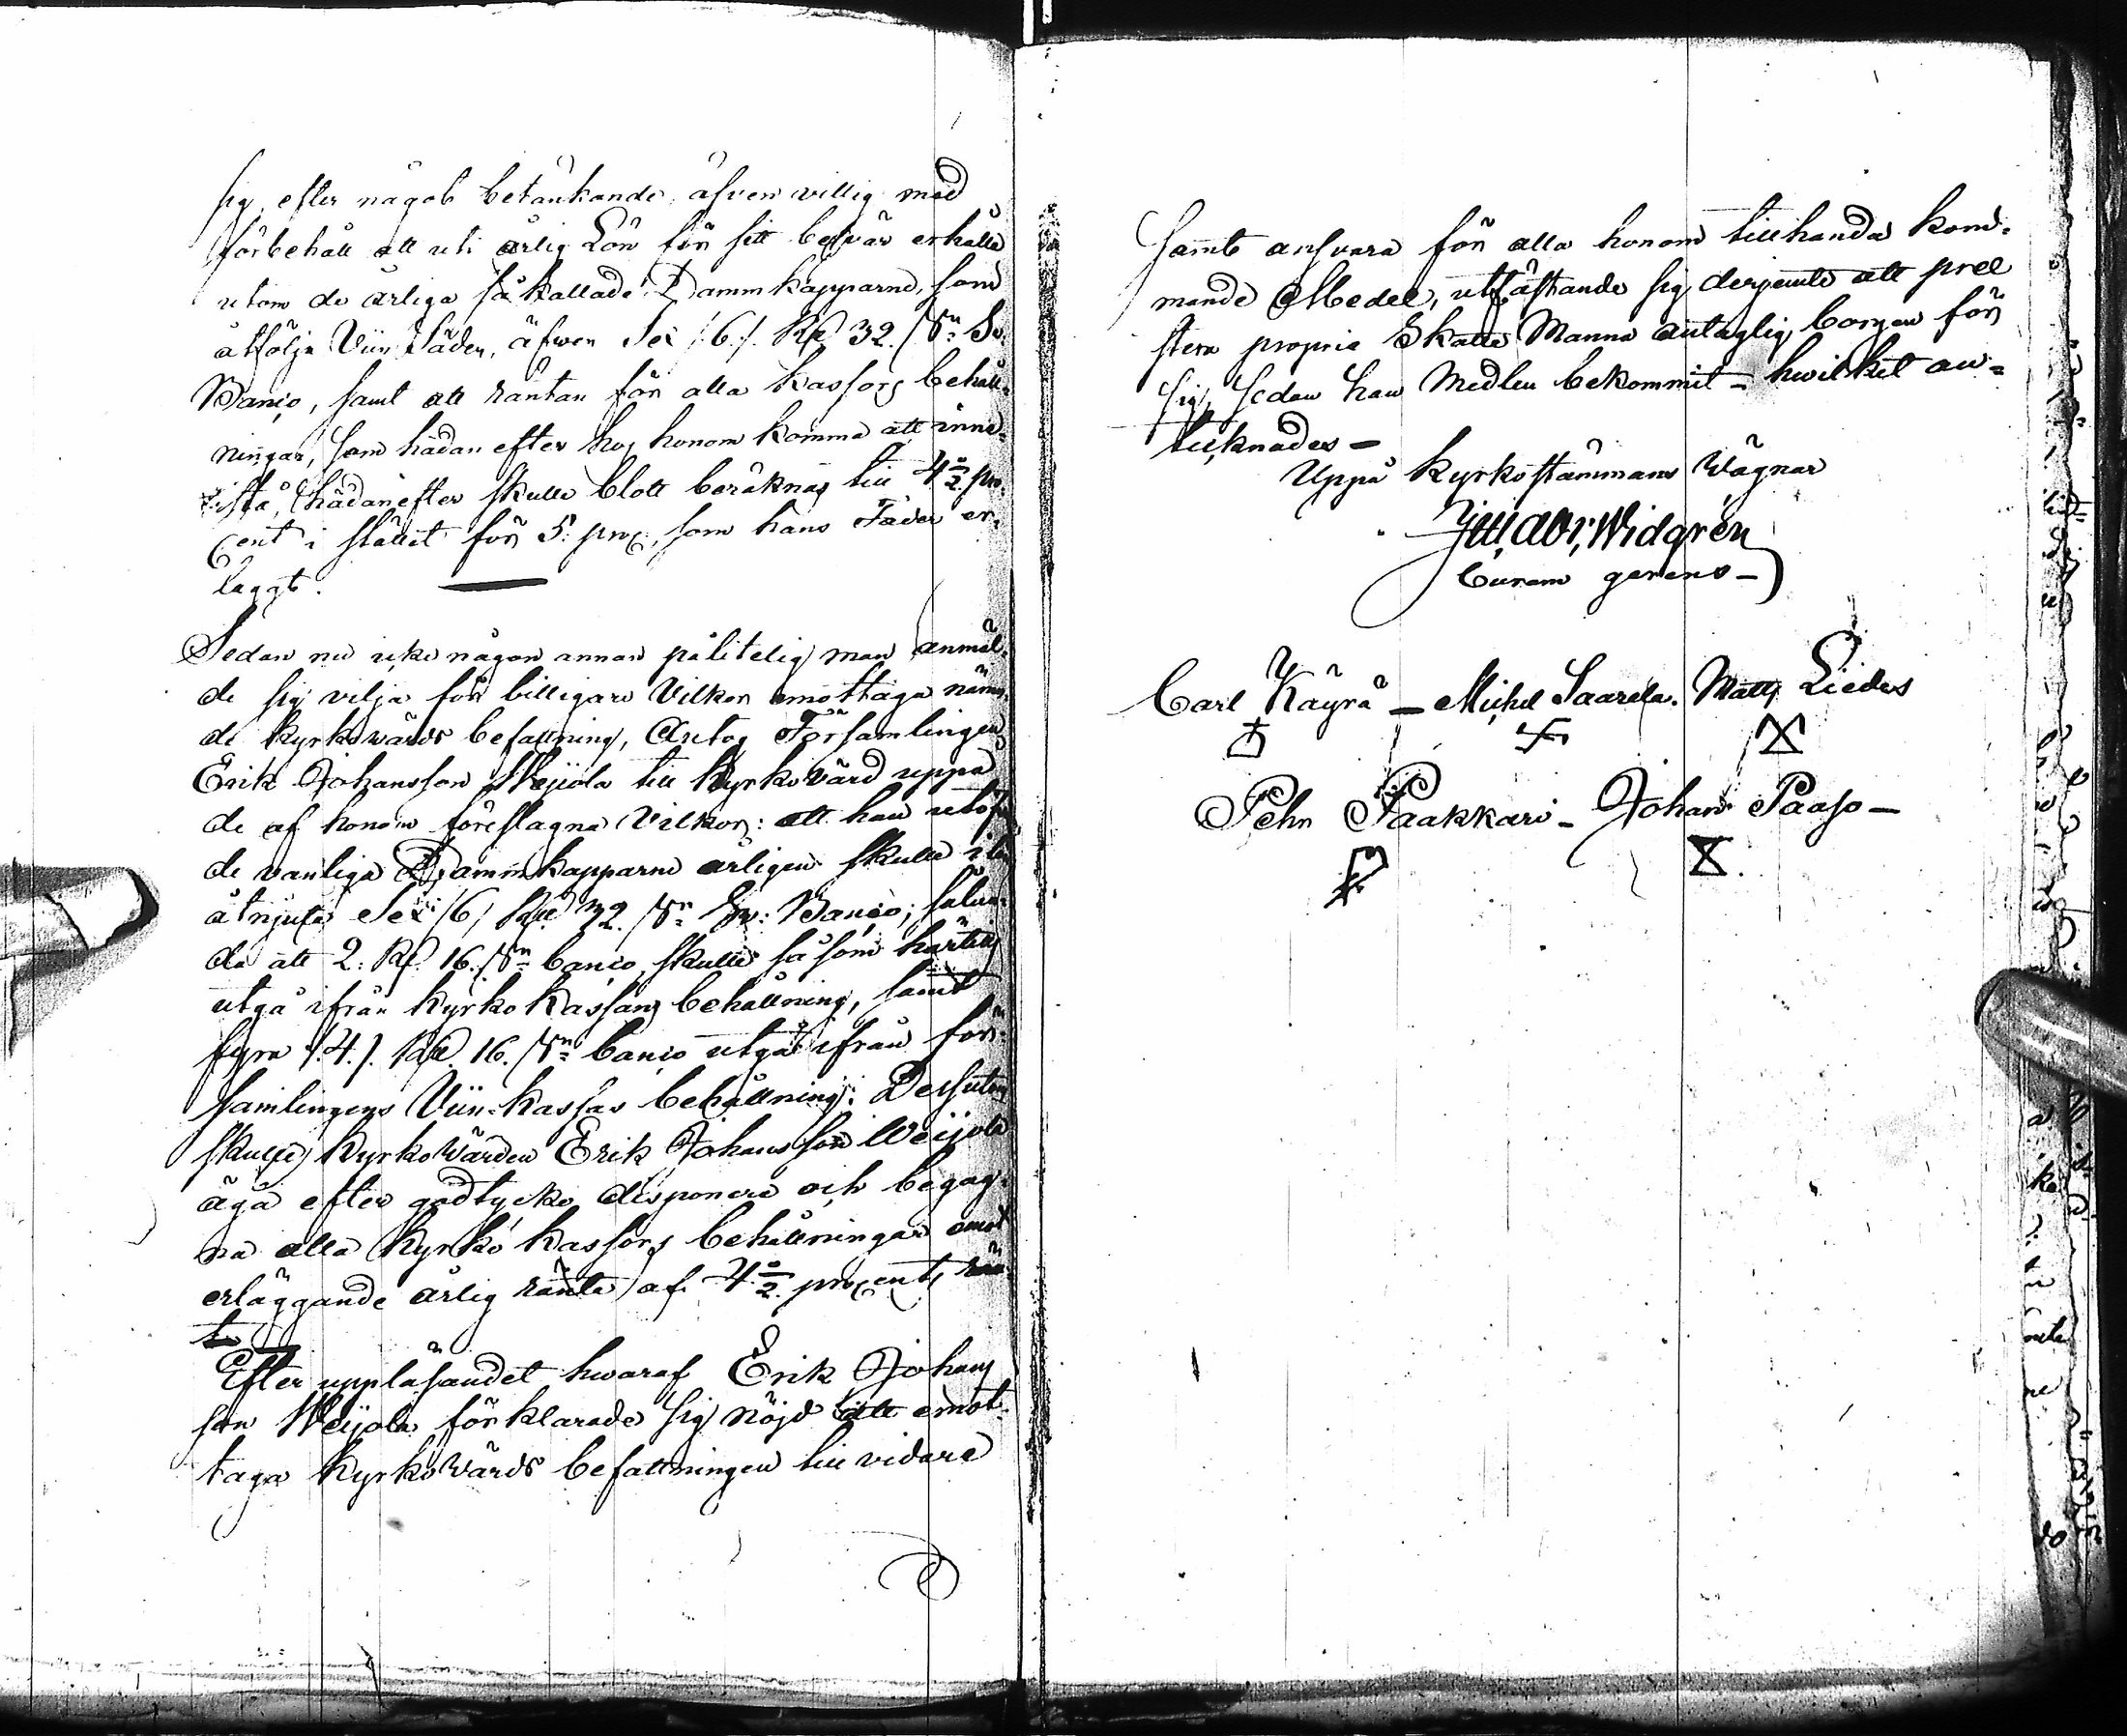 sig, efter något betänkande, äfven villig med
förbehåll att uti årlig Lön för sitt besvär erhålla
utom de årliga så kallade Dammkapparne, som
åtfölja Viin Säden, äfwen Sex /:6:/ Rd 32. sn Sv:
Banco, samt att räntan för alla Kassors behåll-
ningar, som hädanefter hos honom komma att inne-
stå, hädanefter skulle blott beräknas till 4½ pro-
cent i stället för 5. proc:, som hans Fader er-
laggt.
Sedan nu icke någon annan pålitelig man anmäl-
de sig vilja för billigare Vilkor emottaga nämn-
de kyrkowärds befattning, Antog Församlingen
Erik Johansson Weijola till Kyrkovärd uppå
de af honom föreslagna Vilkor: att han utöfver
de vanliga Dammkapparne årligen skulle
åtnjuta Sex /6/ Rd 32. sn Sv: Banco; sålun-
da att 2: Rd 16. sn banco, skulle såsom härtills
utgå ifrån Kyrko Kassans behållning, samt
fyra /:4./. Rd 16. sn banco utgå ifrån För-
samlingens Viin-Kassas behållning: Dessutom
skulle Kyrkowärden Erik Johansson Weijola
äga efter godtycke disponera och begag-
na alla Kyrko Kassors behållningar emot
erläggande årlig ränta af 4½ procents rän-
ta
Efter uppläsandet hwaraf Erik Johans
son Weijola förklarade sig nöjd att emot-
taga Kyrkowärds befattningen till vidare
samt ansvara för alla honom tillhanda kom-
mande Medel, utfästande sig derjemte att præ
stera propria Skatte Manna antaglig borgen för
sig, sedan han Medlen bekommit - hwilket an-
tecknades -
Uppå Kyrkostämmans Wägnar
Widgrén
Curam gerens -
Carl Käyrä - Michel Saarela. Matts Liedes
Pehr Paakkari - Johan Paaso -